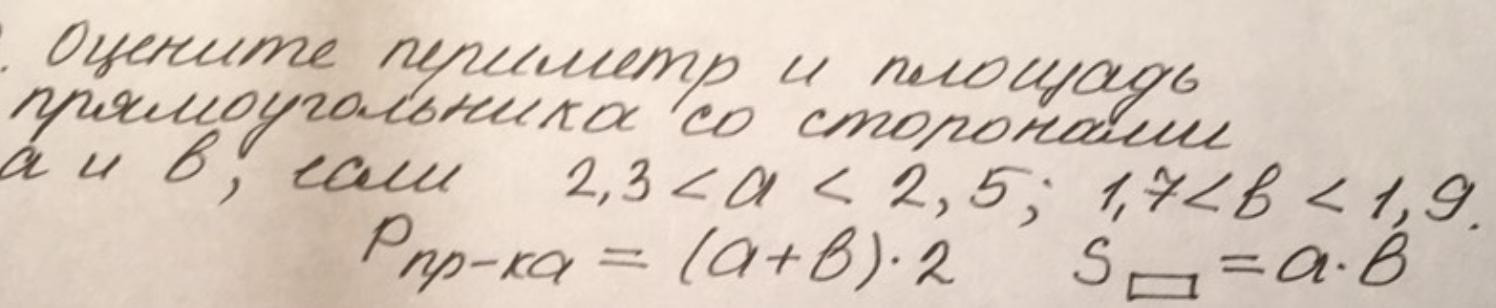 . Оцените периметр и площадь
прямоугольника со сторонами
а и в, если 2,3 < а < 2,5; 1,7 < в < 1,9.
Pпр-ка = (а+в)·2 S▭ = а·в